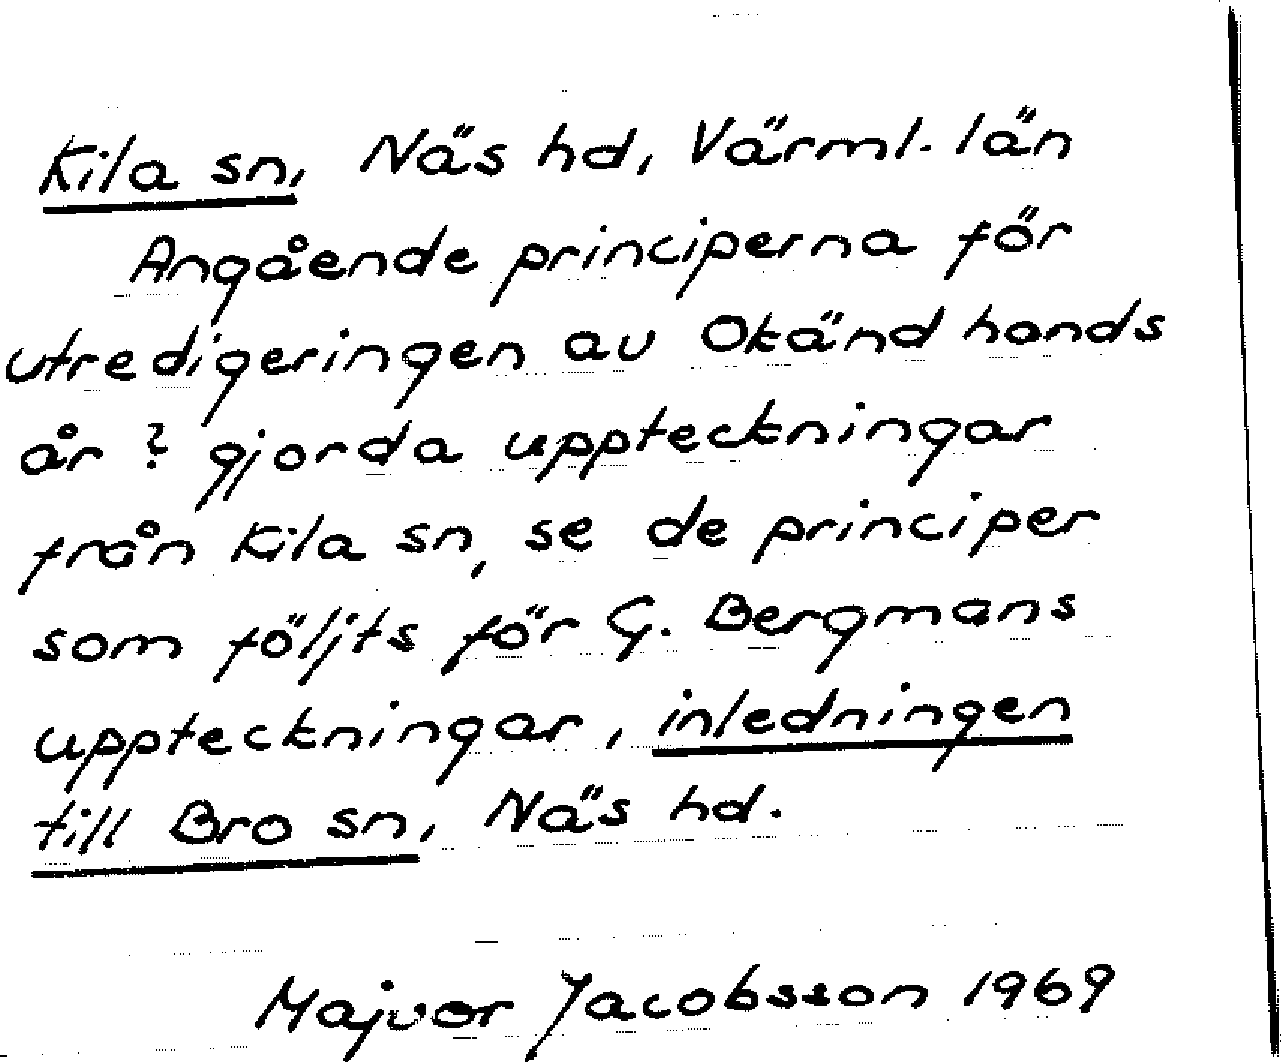 Kila sn, Näs hd, Värml. län
Angående principerna för
utredigeringen av Okänd hands
år ? gjorda uppteckningar
från Kila sn, se de principer
som följts för G. Bergmans
uppteckningar, inledningen
till Bro sn, Näs hd.
Majvor Jacobsson 1969